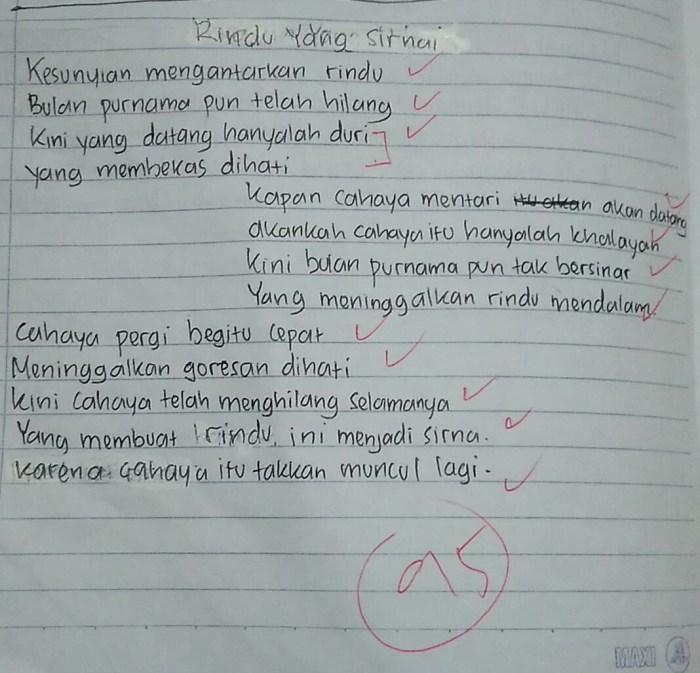 Rindu Yang Sirnai
Kesunyian mengantarkan rindu
Bulan purnama pun telah hilang
Kini yang datang hanyalah duri
Yang membekas dihati
Kapan cahaya mentari itu akan akan datang
akankah cahaya itu hanyalah khalayah
Kini bulan purnama pun tak bersinar
Yang meninggalkan rindu mendalam
Cahaya pergi begitu cepat
Meninggalkan goresan dihati
Kini Cahaya telah menghilang selamanya
Yang membuat rindu, ini menjadi sirna.
Karena Cahaya itu takkan muncul lagi.
95
MAXI